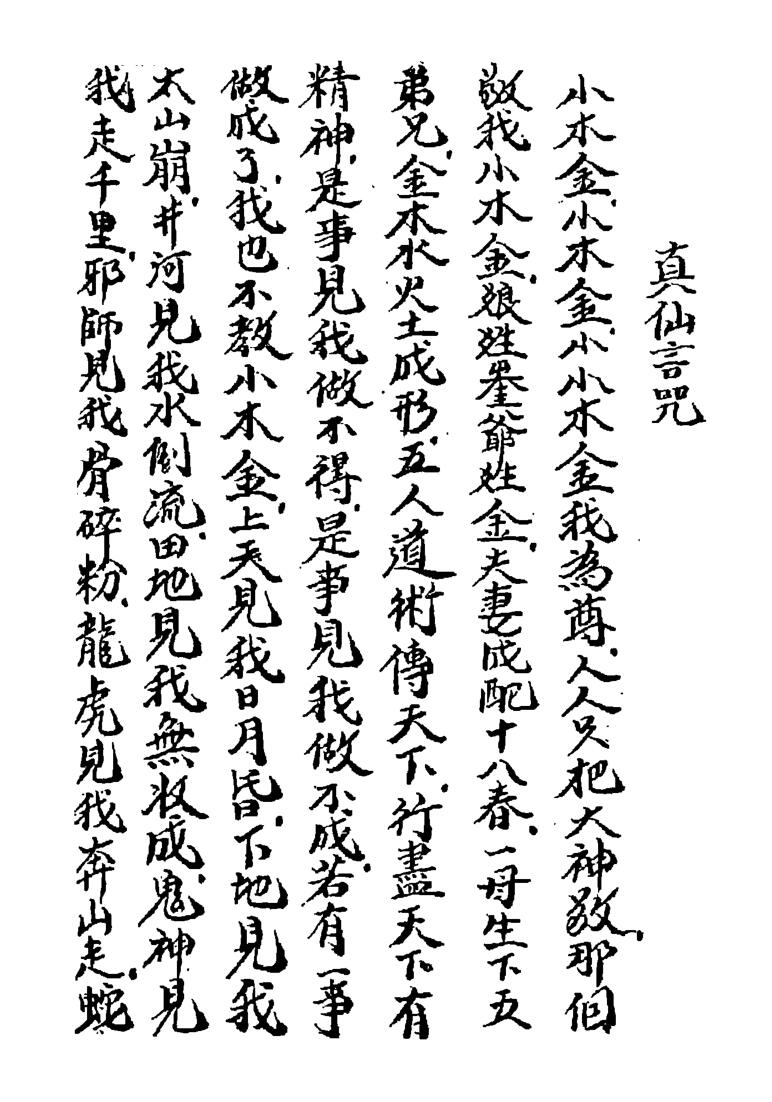 真仙言咒
小木金、小木金、小小木金我為尊、人人只把大神敬、那個
敬我小木金、娘姓崟爺姓金、夫妻成配十八春、一母生下五
弟兄、金木水火土成形、五人道術傳天下、行盡天下有
精神、是事見我做不得、是事見我做不成、若有一事
做成了、我也不教小木金、上天見我日月昏、下地見我
太山崩、井河見我水倒流、田地見我無收成、鬼神見
我走千里、邪師見我骨碎粉、龍虎見我奔山走、蛇